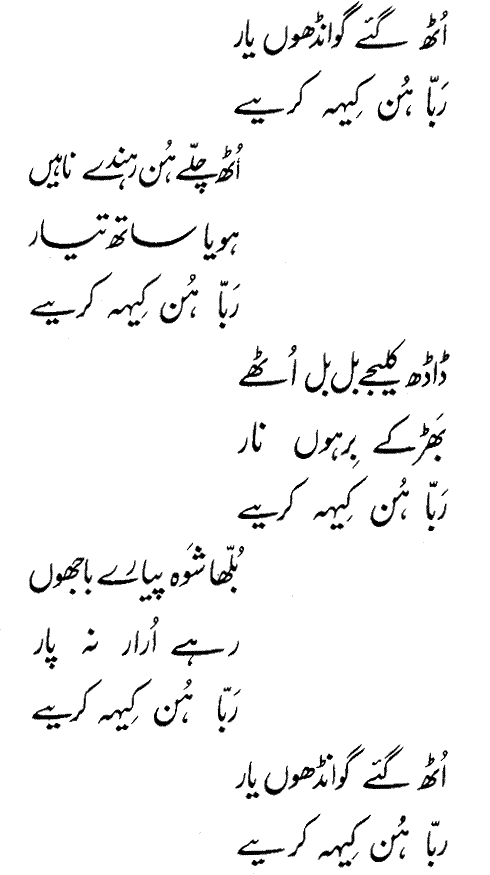 اُٹھ گئے گوانڈھوں یار
رَبّا ہُن کِیہہ کریے
اُٹھ چلّے ہُن رہندے ناہیں
ہویا ساتھ تیار
رَبّا ہُن کِیہہ کریے
ڈاڈھ کلیجے بل بل اُٹھے
بھَڑکے بِرہوں نار
رَبّا ہُن کِیہہ کریے
بُلّھا شَوہ پیارے باجھوں
رہے اُرار نہ پار
رَبّا ہُن کِیہہ کریے
اُٹھ گئے گوانڈھوں یار
ربّا ہُن کِیہہ کریے